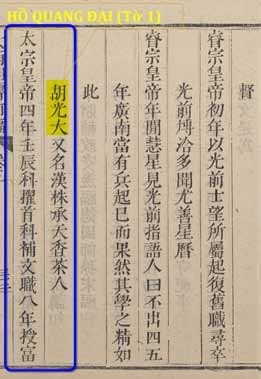 HỒ QUANG ĐẠI (Tờ 1)
督
睿宗皇帝初年以光前士望所屬起復舊職尋卒
光前博洽多聞尤善星曆
睿宗皇帝年間慧星見光前指語人曰不出四五
年廣南當有兵起已而果然其學之精如
此
胡光大又名漢株承天香茶人
太宗皇帝四年壬辰科擢首科補文職八年授富